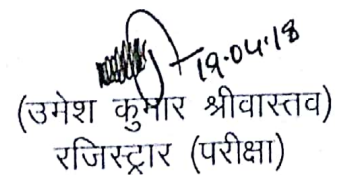 19.04.18
(उमेश कुमार श्रीवास्तव)
रजिस्ट्रार (परीक्षा)